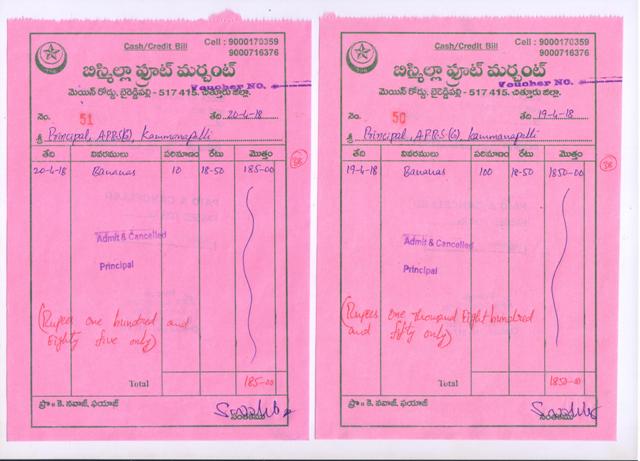 Cash/Credit Bill
Cell : 9000170359
9000716376
బిస్మిల్లా ఫ్రూట్ మర్చంట్
Voucher NO.
మెయిన్ రోడ్డు, బైరెడ్డిపల్లి - 517 415. చిత్తూరు జిల్లా.
నెం. 51 తేది 20-4-18
శ్రీ Principal, APRS(G), Kammanapalli
తేది వివరములు పరిమాణం రేటు మొత్తం
20-4-18 Bananas 10 18-50 185-00
Admit & Cancelled
Principal
(Rupees one hundred and
Eighty five only)
Total 185-00
ప్రొ॥ కె. నవాజ్, ఫయాజ్
సంతకము
Cash/Credit Bill
Cell : 9000170359
9000716376
బిస్మిల్లా ఫ్రూట్ మర్చంట్
Voucher NO.
మెయిన్ రోడ్డు, బైరెడ్డిపల్లి - 517 415. చిత్తూరు జిల్లా.
నెం. 50 తేది 19-4-18
శ్రీ Principal, APRS(G), Kammanapalli
తేది వివరములు పరిమాణం రేటు మొత్తం
19-4-18 Bananas 100 18-50 1850-00
Admit & Cancelled
Principal
(Rupees one Thousand Eight hundred
and fifty only)
Total 1850-00
ప్రొ॥ కె. నవాజ్, ఫయాజ్
సంతకము